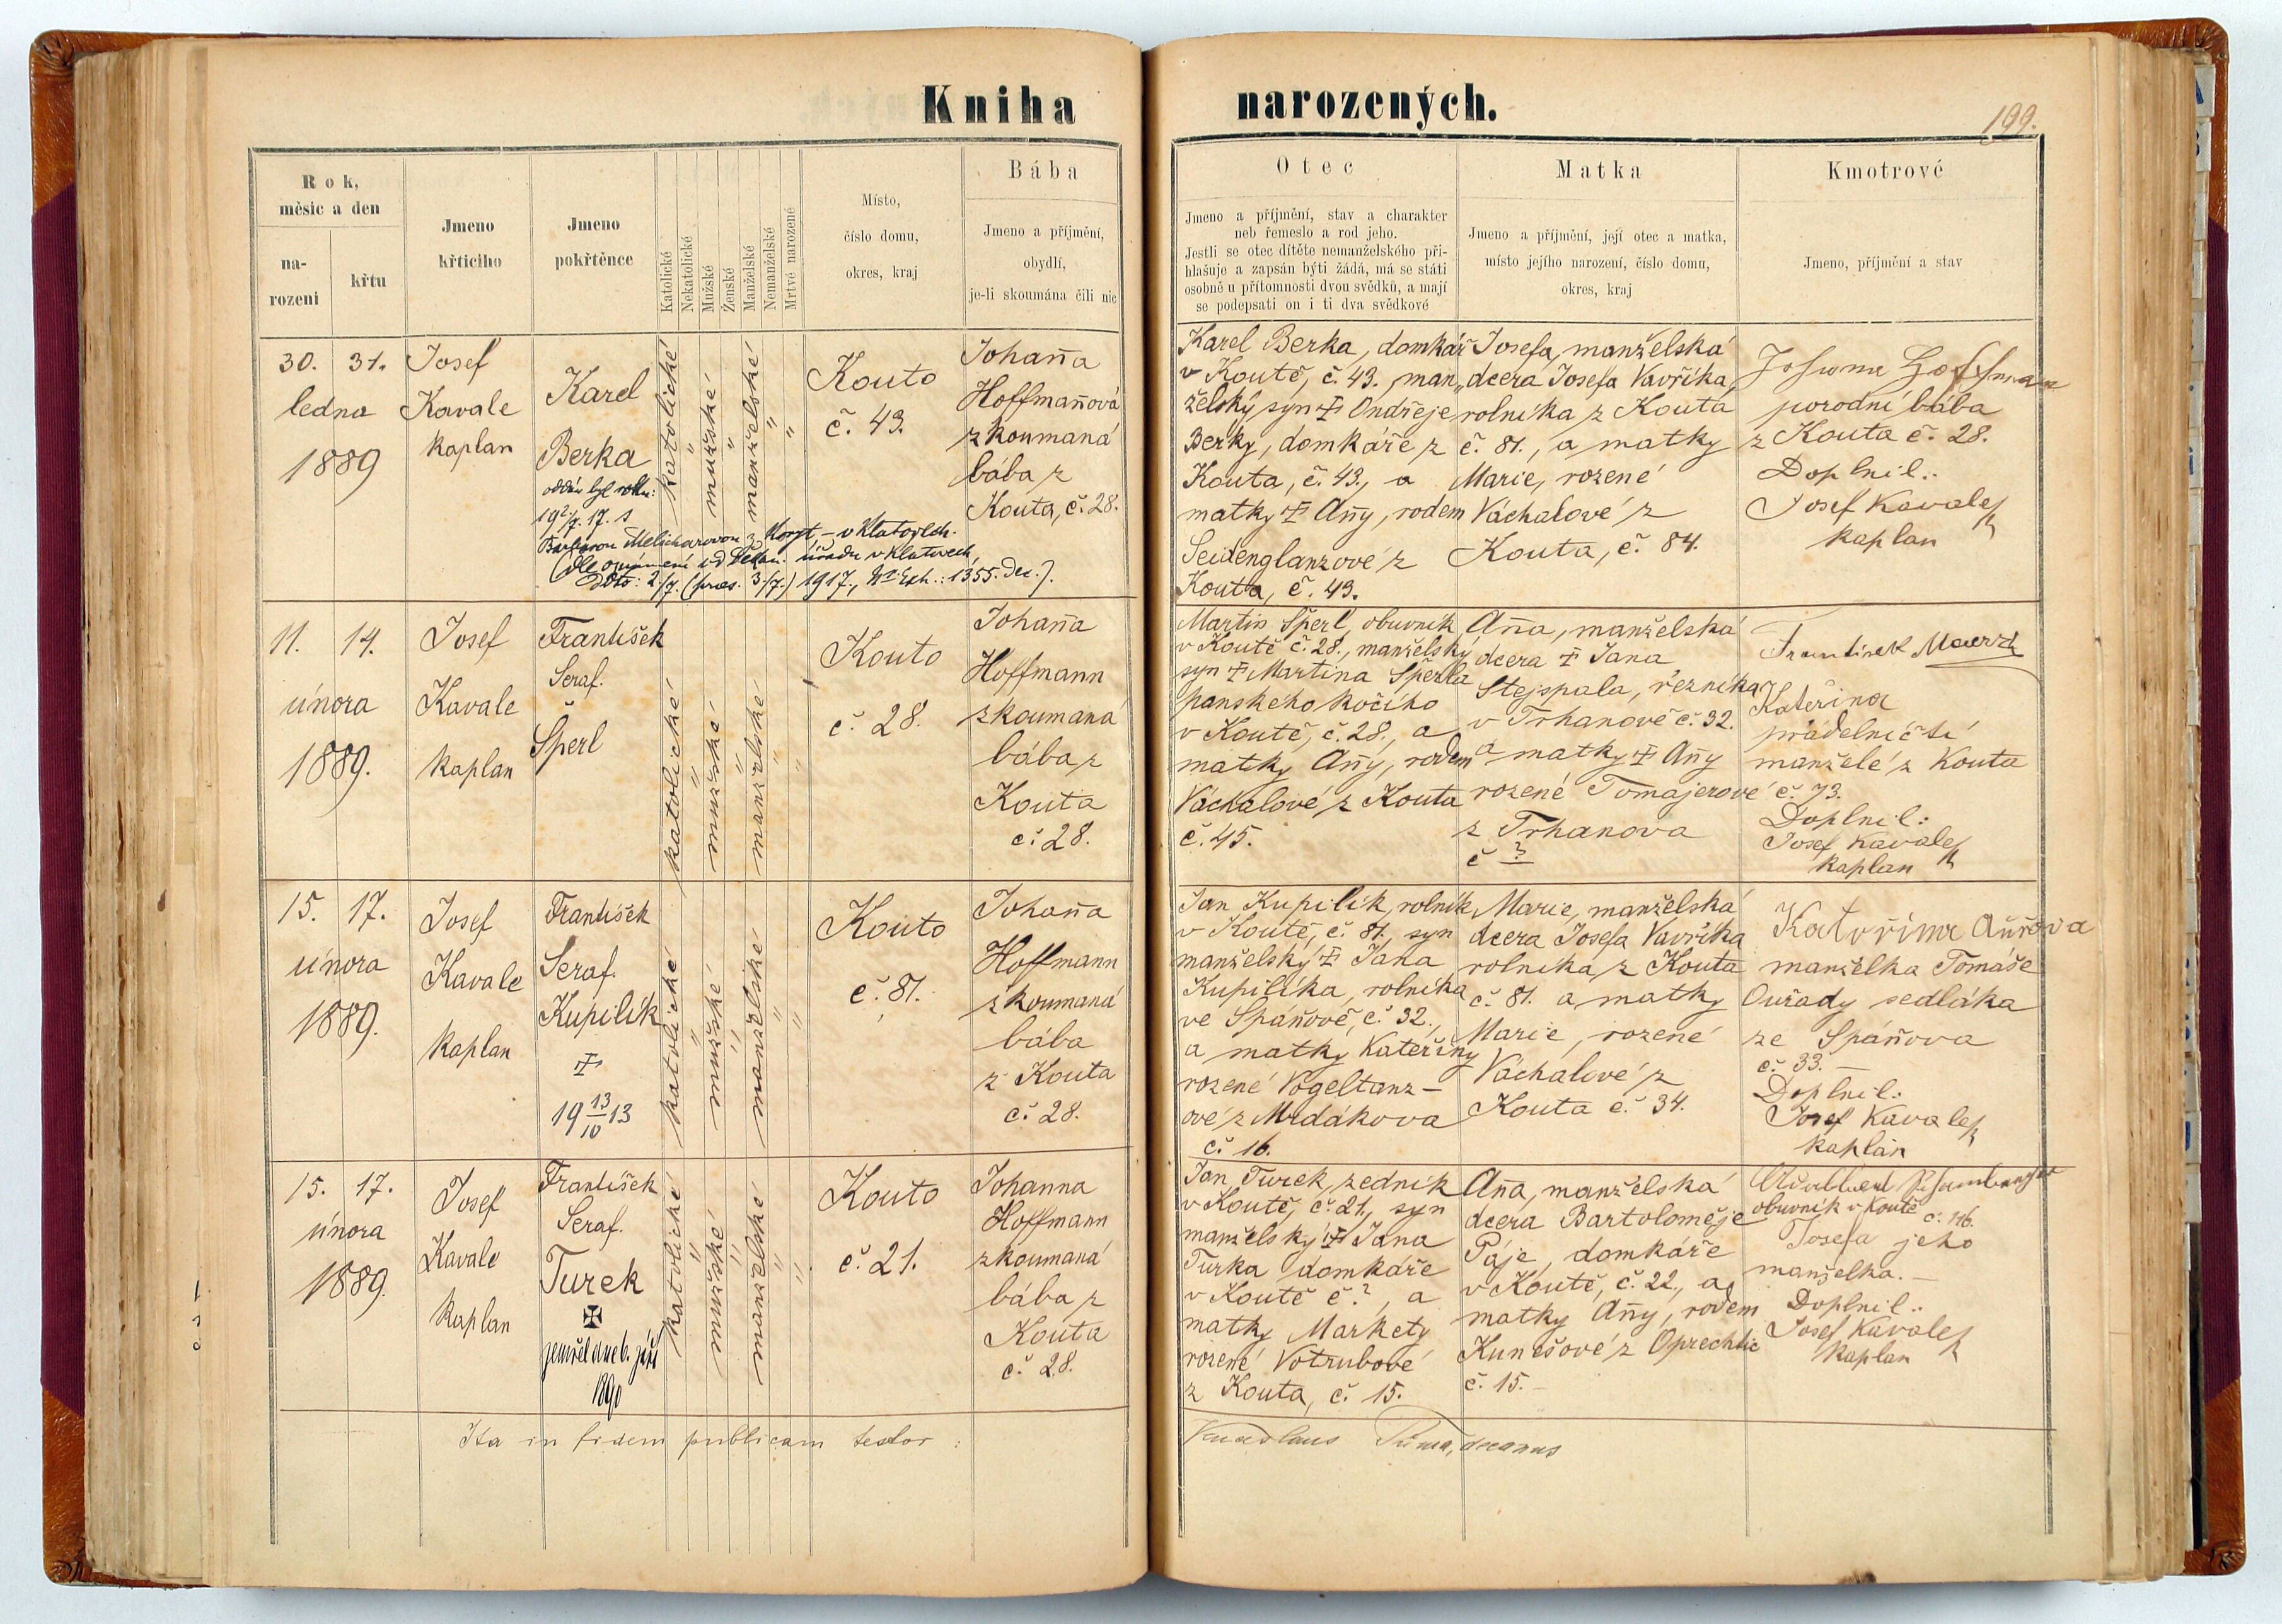 Kniha narozených.
199.
Rok,
měsíc a den
na-
rozeni
křtu
Jmeno
křticiho
Jmeno
pokřtěnce
Katolické
Nekatolické
Mužské
Ženské
Manželské
Nemanželské
Mrtvé narozené
Místo,
číslo domu,
okres, kraj
Bába
Jmeno a příjmění,
obydlí,
je-li skoumána čili nic
Otec
Jmeno a příjmění, stav a charakter
neb řemeslo a rod jeho.
Jestli se otec dítěte nemanželského při-
hlašuje a zapsán býti žádá, má se státi
osobně u přítomnosti dvou svědků, a mají
se podepsati on i ti dva svědkové
Matka
Jmeno a příjmění, její otec a matka,
místo jejího narození, číslo domu,
okres, kraj
Kmotrové
Jmeno, příjmění a stav
30. 31.
ledna
1889
Josef
Kavale
kaplan
Karel
Berka
oddán byl roku:
19 2/7. 17. s
Barborou Melicharovou z Koryt, – v Klatovech.
(dle oznámení od děkan. úřadu v Klatovech,
Ddto: 2/7. (praes. 3./7.) 1917, No Exh.: 1355. dec.).
katolické
"
mužské
"
manželské
"
"
Kouto
č. 43.
Johan̄a
Hoffman̄ová
zkoumaná
bába z
Kouta, č. 28.
Karel Berka, domkář
v Koutě, č. 43. man„
želský syn † Ondřeje
Berky, domkáře z
Kouta, č. 43., a
matky † An̄y, rodem
Seidenglanzove z
Kouta, č. 43.
Josefa, manželská
dcera Josefa Vavříka,
rolníka z Kouta
č. 81., a matky
Marie, rozené
Váchalové z
Kouta, č. 84.
porodní bába
z Kouta č. 28.
Doplnil:
Josef Kavale
kaplan
11. 14.
února
1889.
Josef
Kavale
kaplan
František
Seraf.
Šperl
katolické
"
mužské
"
manželské
"
"
Kouto
č. 28.
Johan̄a
Hoffmann
zkoumaná
bába z
Kouta
č. 28.
Martin Šperl, obuvník
v Koutě č. 28., manželský
syn † Martina Šperla
panského kočího
v Koutě, č. 28., a
matky An̄y, rodem
Váchalové z Kouta
č. 45.
An̄a, manželská
dcera † Jana
Stejspala, řezníka
v Trhanově č. 32.
a matky † An̄y
rozené Tomajerové
z Trhanova
č ?
František
Kateřina
prádelničtí
manželé z Kouta
č. 73.
Doplnil:
Josef Kavale
kaplan
15. 17.
února
1889.
Josef
Kavale
kaplan
František
Seraf.
Kupilík
†
19 13/10 13
katolické
"
mužské
"
manželské
"
"
Kouto
č. 81.
Johan̄a
Hoffmann
zkoumaná
bába
z Kouta
č. 28.
Jan Kupilík, rolník
v Koutě, č. 81. syn
manželský † Jana
Kupilíka, rolníka
ve Spáňově, č. 32.,
a matky Kateřiny
rozené Vogeltanz–
ové z Mrdákova
č. 16.
Marie, manželská
dcera Josefa Vavříka
rolníka z Kouta
č. 81. a matky
Marie, rozené
Váchalové z
Kouta č. 34.
Kateřina
manželka Tomáše
Ouřady sedláka
ze Spáňova
č. 33. –
Doplnil:
Josef Kavale
kaplan
15. 17.
února
1889.
Josef
Kavale
kaplan
František
Seraf.
Turek
✠
zemřel dne 6. září
1890
katolické
"
mužské
"
manželské
"
"
Kouto
č. 21.
Johanna
Hoffmann
zkoumaná
bába z
Kouta
č. 28.
Jan Turek, zedník
v Koutě, č. 21., syn
manželský † Jana
Turka domkáře
v Koutě č. ?, a
matky Markety
rozené Votrubové
z Kouta, č. 15.
An̄a, manželská
dcera Bartoloměje
Páje, domkáře
v Koutě, č. 22., a
matky An̄y, rodem
Kunešové z Oprechtic
č. 15. –
obuvník v Koutě
č. 116.
Josefa jeho
manželka. –
Doplnil:
Josef Kavale
kaplan
Ita in fidem publicam testor:
Tůma, decanus